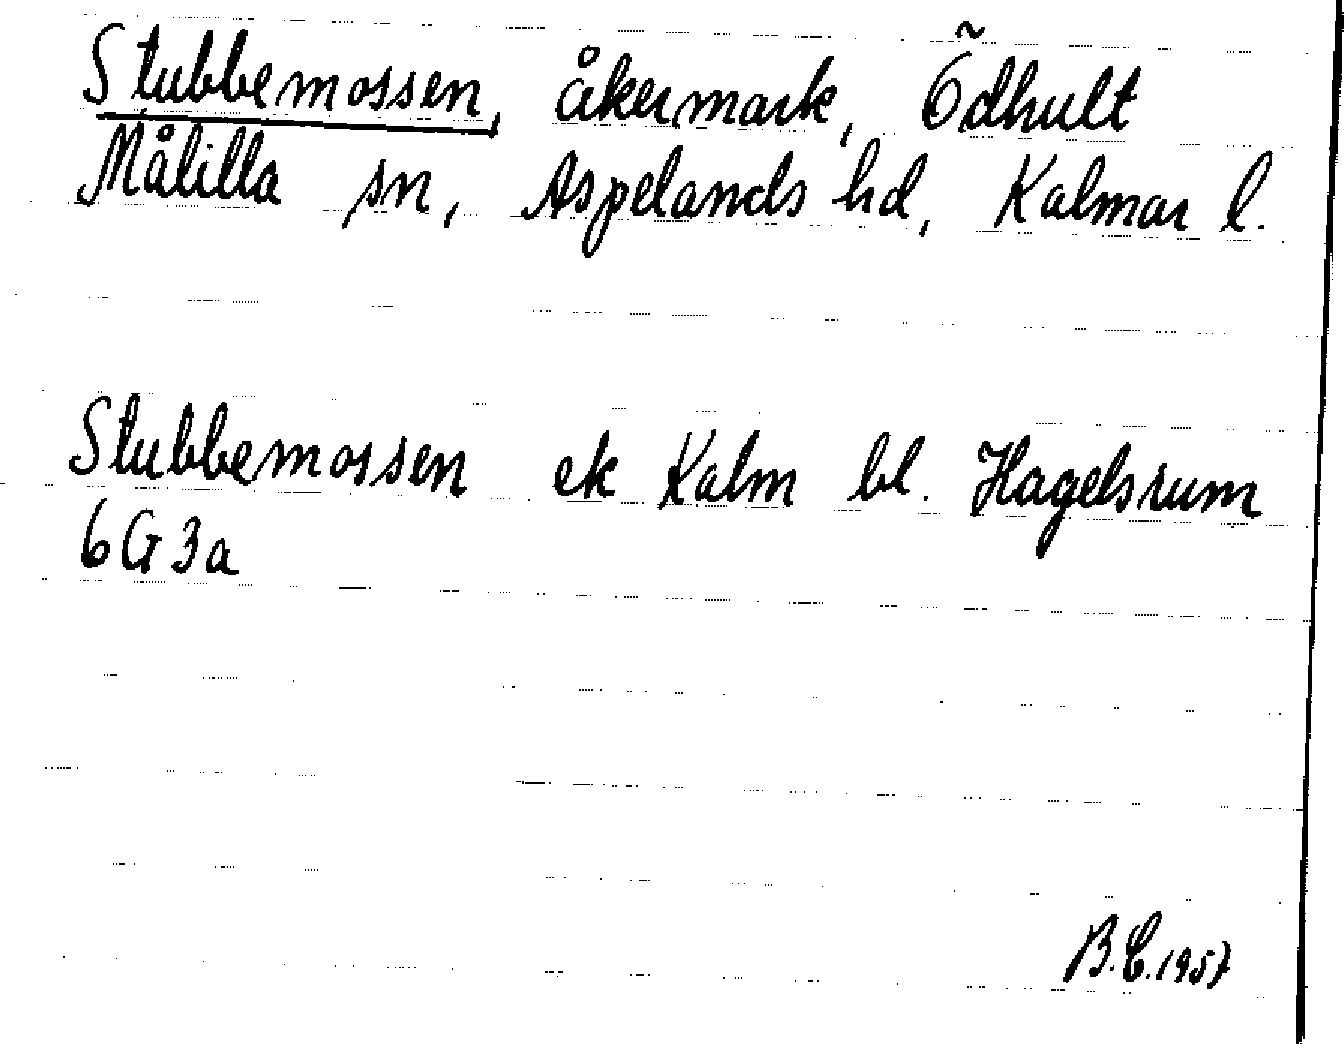 Stubbemossen, åkermark, Ödhult
Målilla sn, Aspelands hd, Kalmar l.
Stubbemossen ek Kalm bl. Hagelsrum
6G3a
B.E. 1957